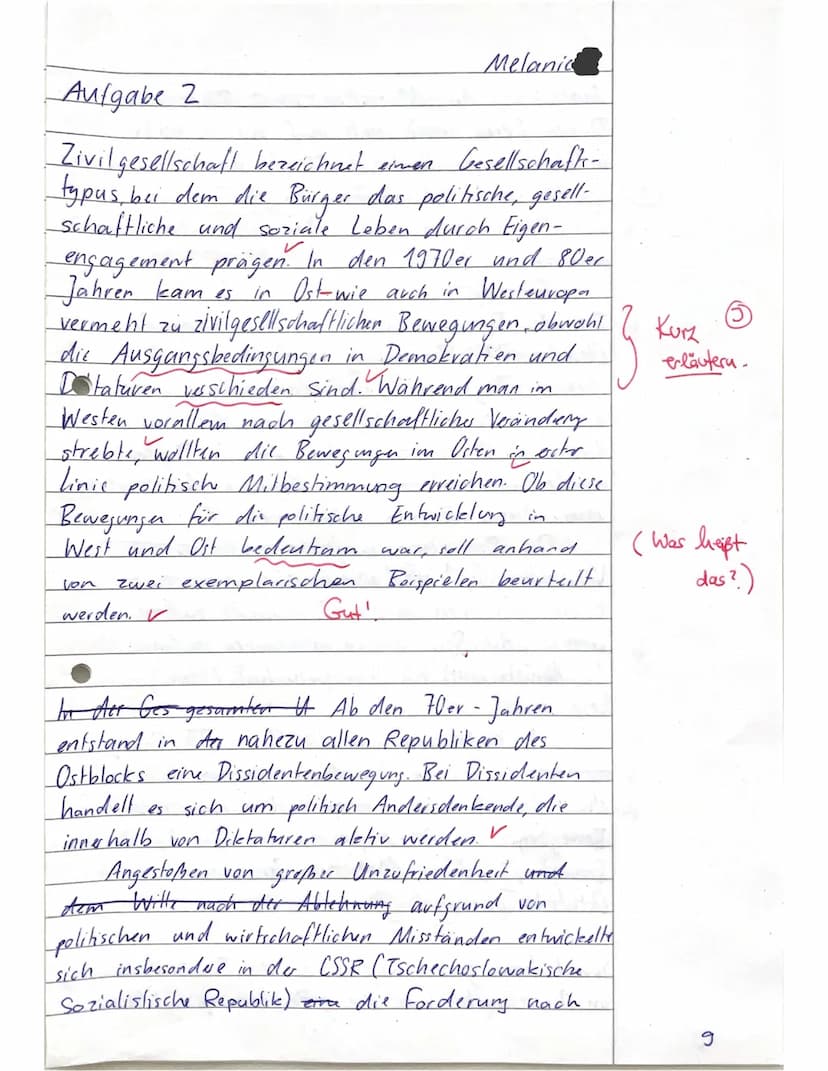 Melanie
Aufgabe 2
Zivilgesellschaft bezeichnet einen Gesellschafts-
typus, bei dem die Bürger das politische, gesell-
schaftliche und soziale Leben durch Eigen-
engagement prägen. In den 1970er und 80er
Jahren kam es in Ost-wie auch in Westeuropa
vermeht zu zivilgesellschaftlichen Bewegungen, obwohl
die Ausgangsbedingungen in Demokratien und
Diktaturen verschieden sind. Während man im
Westen vorallem nach gesellschaftlicher Veränderung
strebte, wollten die Bewegungen im Osten in erster
Linie politische Mitbestimmung erreichen. Ob diese
Bewegungen für die politische Entwicklung in
West und Ost bedeutsam war, soll anhand
von zwei exemplarischen Beispielen beurteilt
werden.
Gut!
Kurz
erläutern.
(Was heißt
das?)
In der Ges gesamten U Ab den 70er-Jahren
entstand in den nahezu allen Republiken des
Ostblocks eine Dissidentenbewegung. Bei Dissidenten
handelt es sich um politisch Andersdenkende, die
innerhalb von Diktaturen aktiv werden.
Angestoßen von großer Unzufriedenheit und
dem Wille nach der Ablehnung aufgrund von
politischen und wirtschaftlichen Misständen entwickelte
sich insbesondere in der CSSR (Tschechoslowakische
Sozialistische Republik) eine die Forderung nach
9